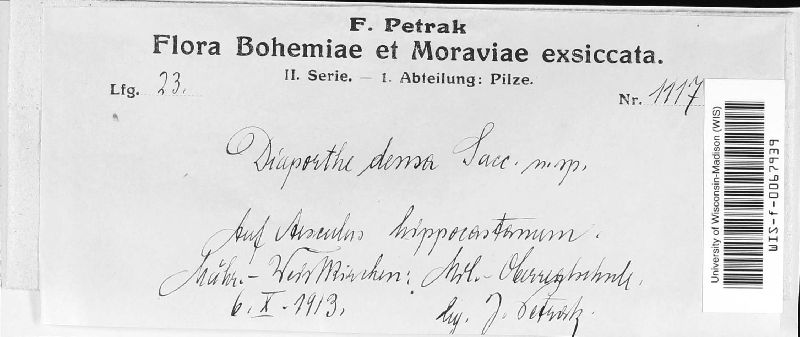 F. Petrak
Flora Bohemiae et Moraviae exsiccata.
II. Serie. — 1. Abteilung: Pilze.
Lfg. 23.
Nr. 1117
Diaporthe densa Sacc. n. sp.
Auf Aesculus hippocastanum.
Mähr.- Weisskirchen: Mil.- Oberrealschule.
6. X. 1913.
leg. J. Petrak.
University of Wisconsin-Madison (WIS)
WIS-f-0067939